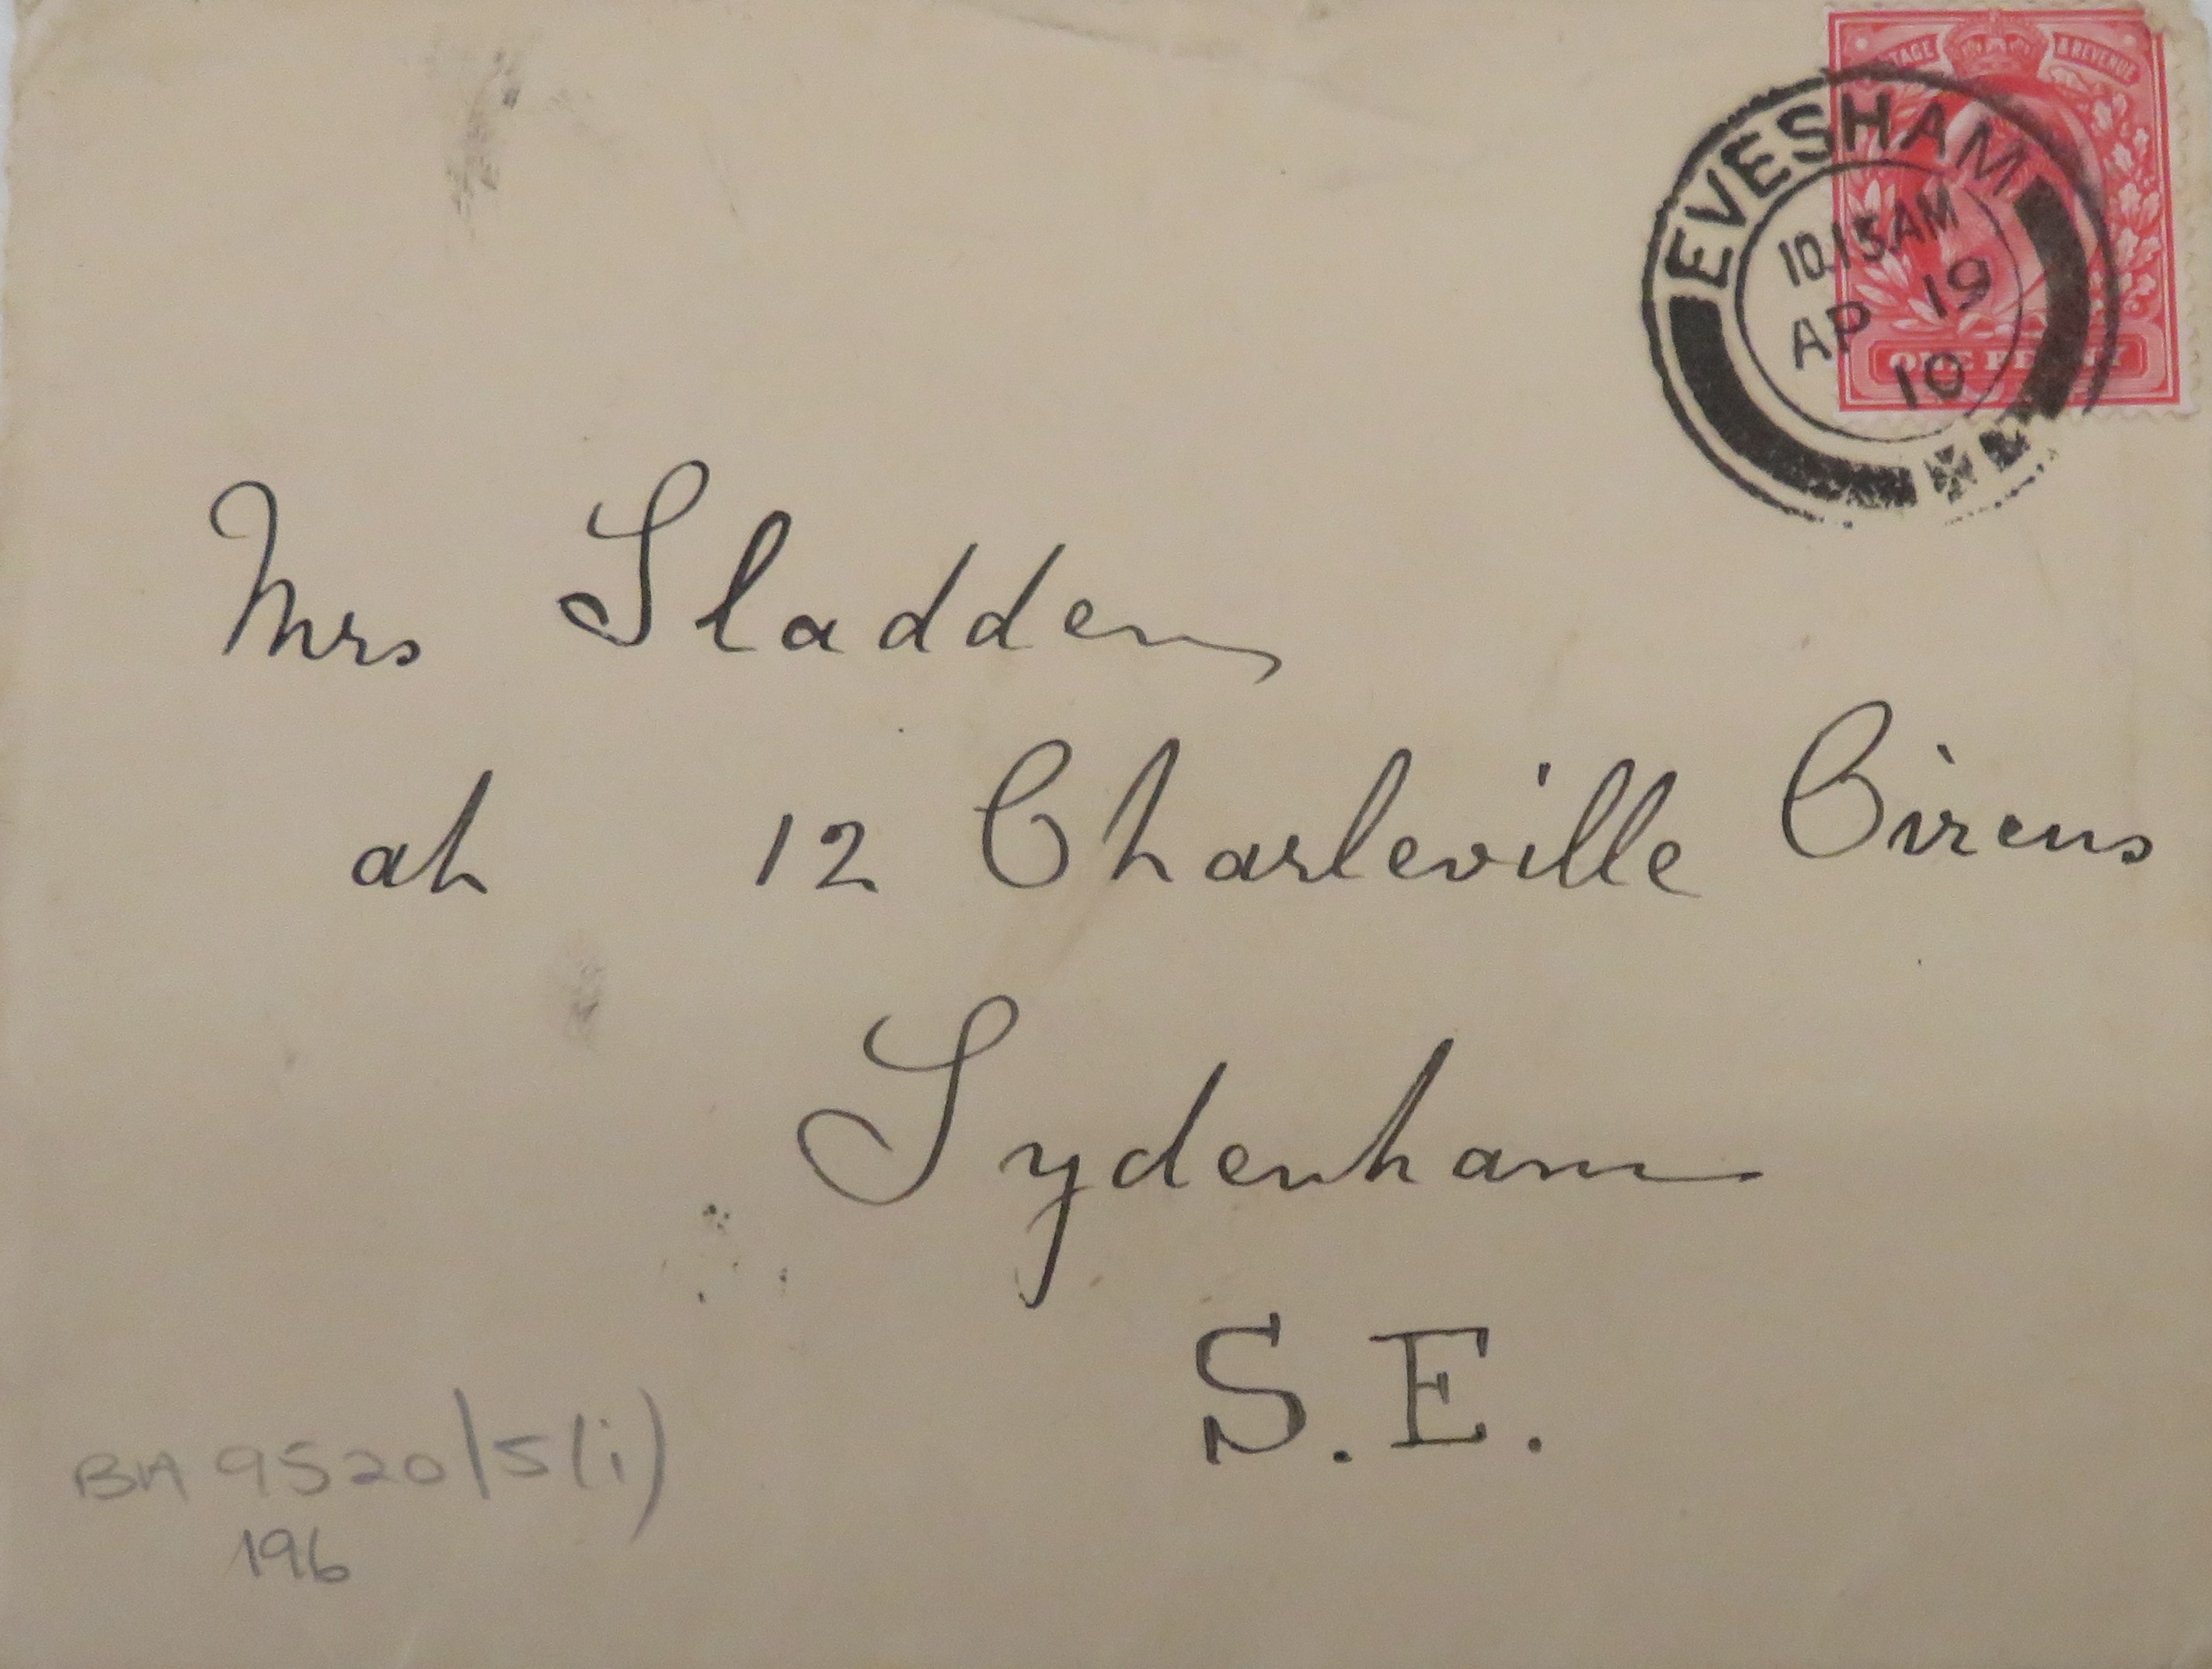 TAGE & REVENUE
EVESHAM
10.15.AM
AP 19
10
ONE PENNY
Mrs Sladden
at 12 Charleville Circus
Sydenham
S.E.
BA 9520/5(i)
196